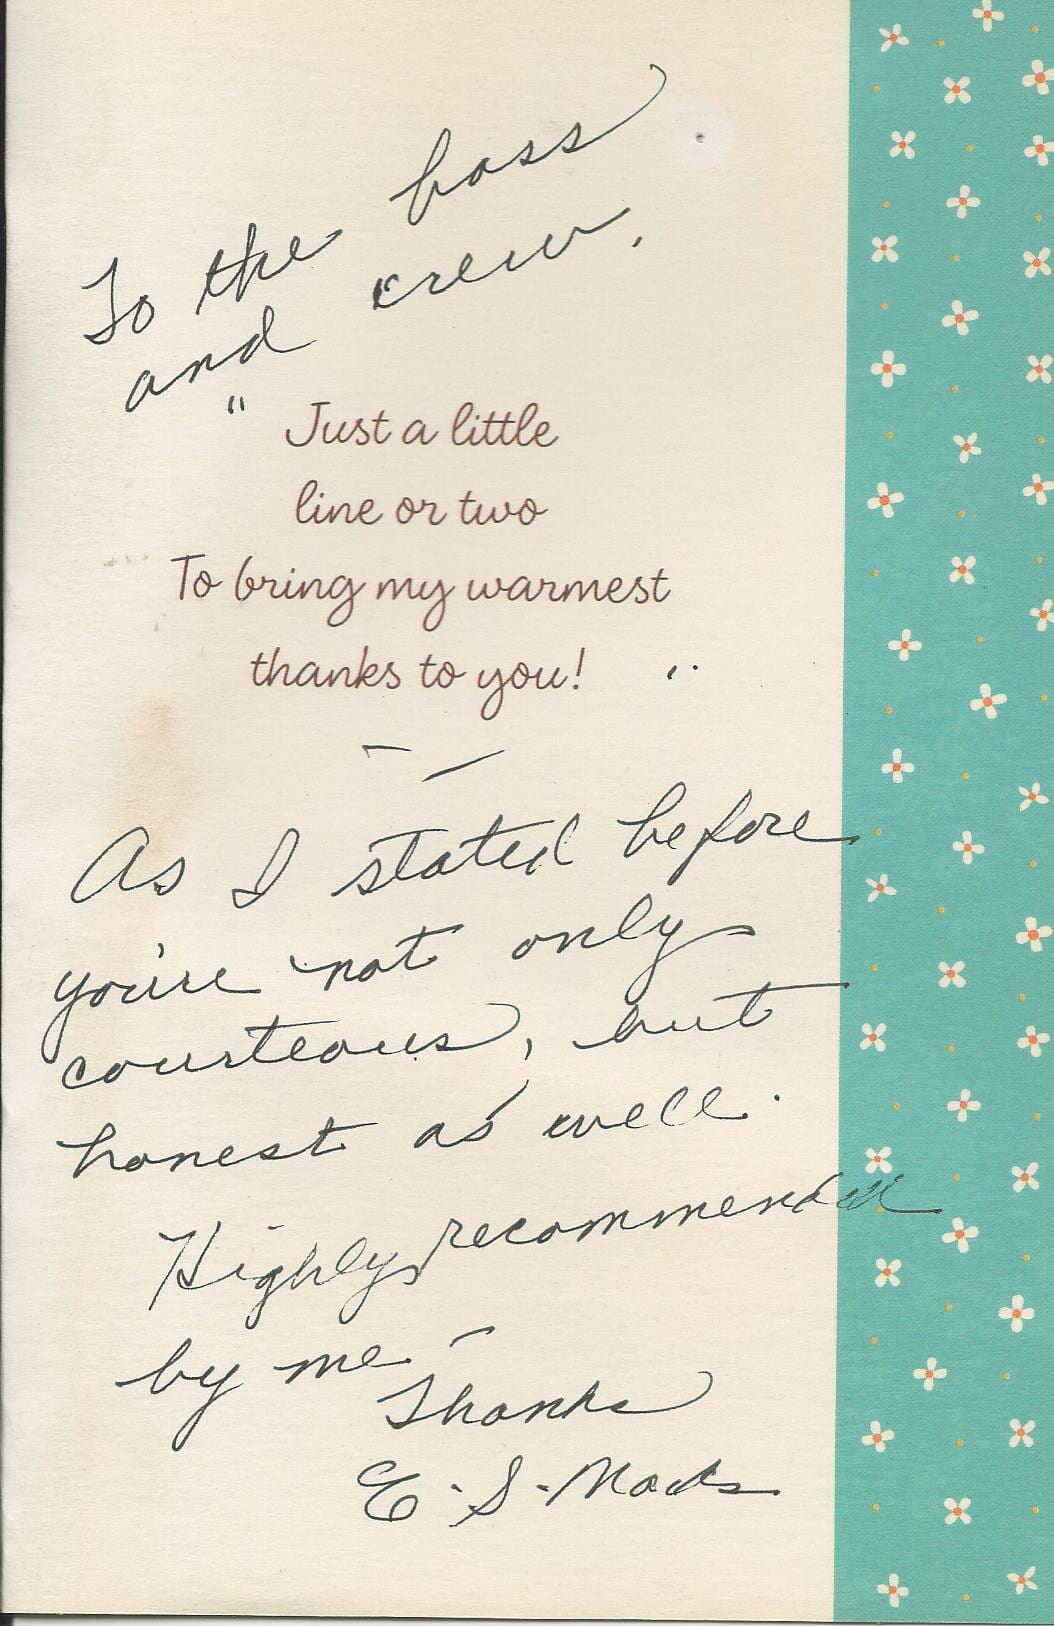 To the boss
and crew,
"Just a little
line or two
To bring my warmest
thanks to you!"
As I stated before
you're not only
courteous, but
honest as well.
Highly recommended
by me –
Thanks
E. S.